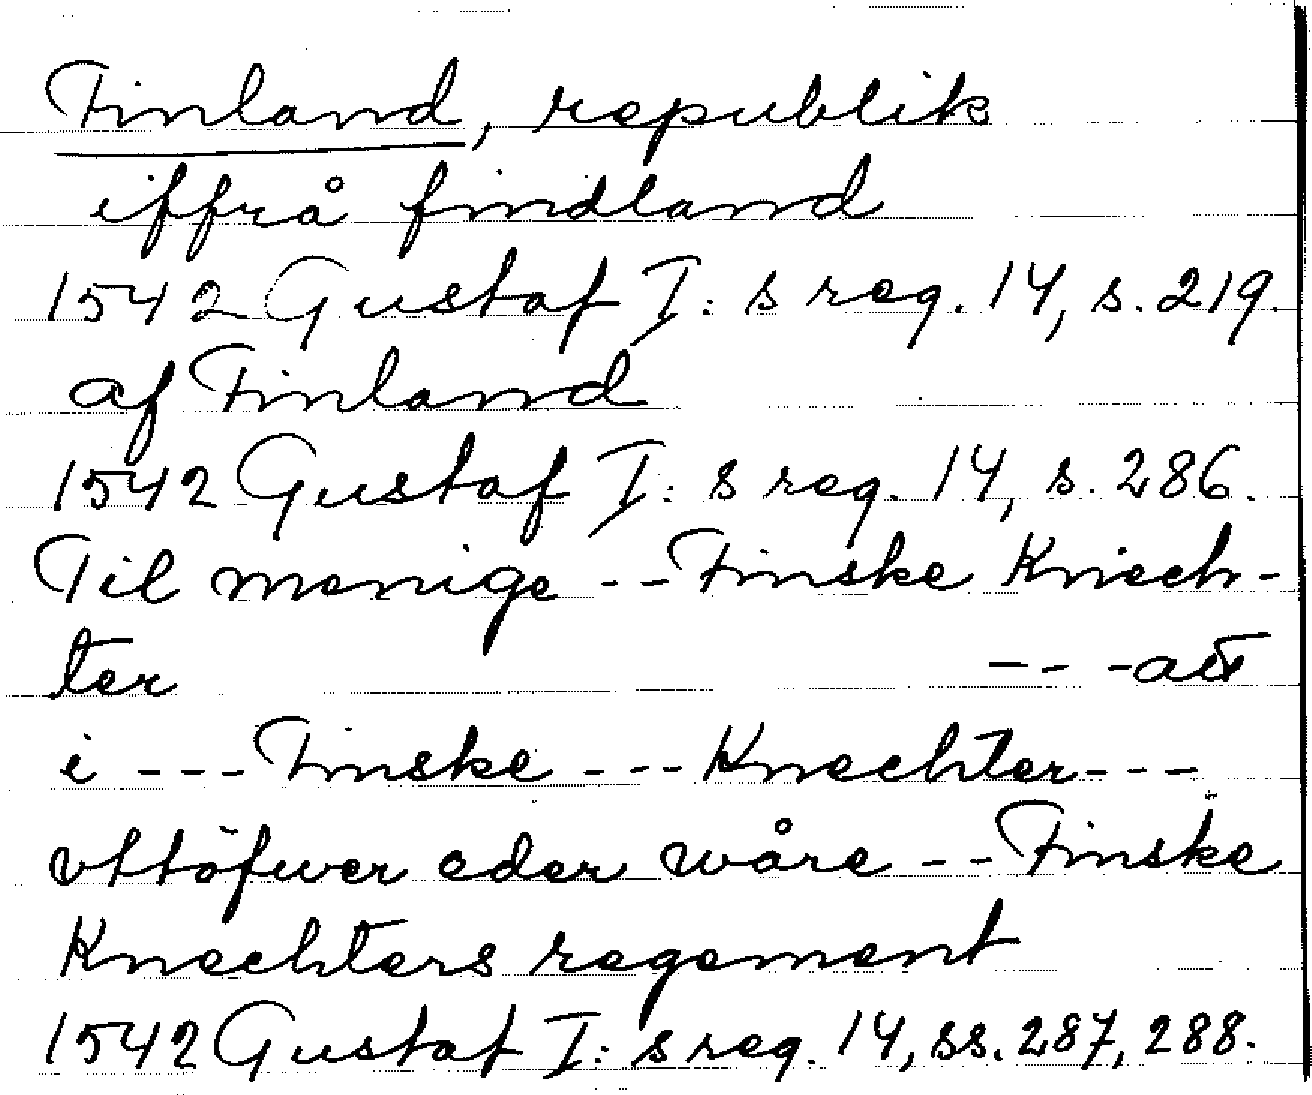 Finland, republik
iffrå findland
1542 Gustaf I: s reg. 14, s. 219.
af Finland
1542 Gustaf I: s reg. 14, s. 286.
Til menige -- Finske Knech-
ter --- att
i --- Finske --- Knechter ---
vttöfwer eder wåre -- Finske
Knechters regement
1542 Gustaf I: s reg. 14, ss. 287, 288.